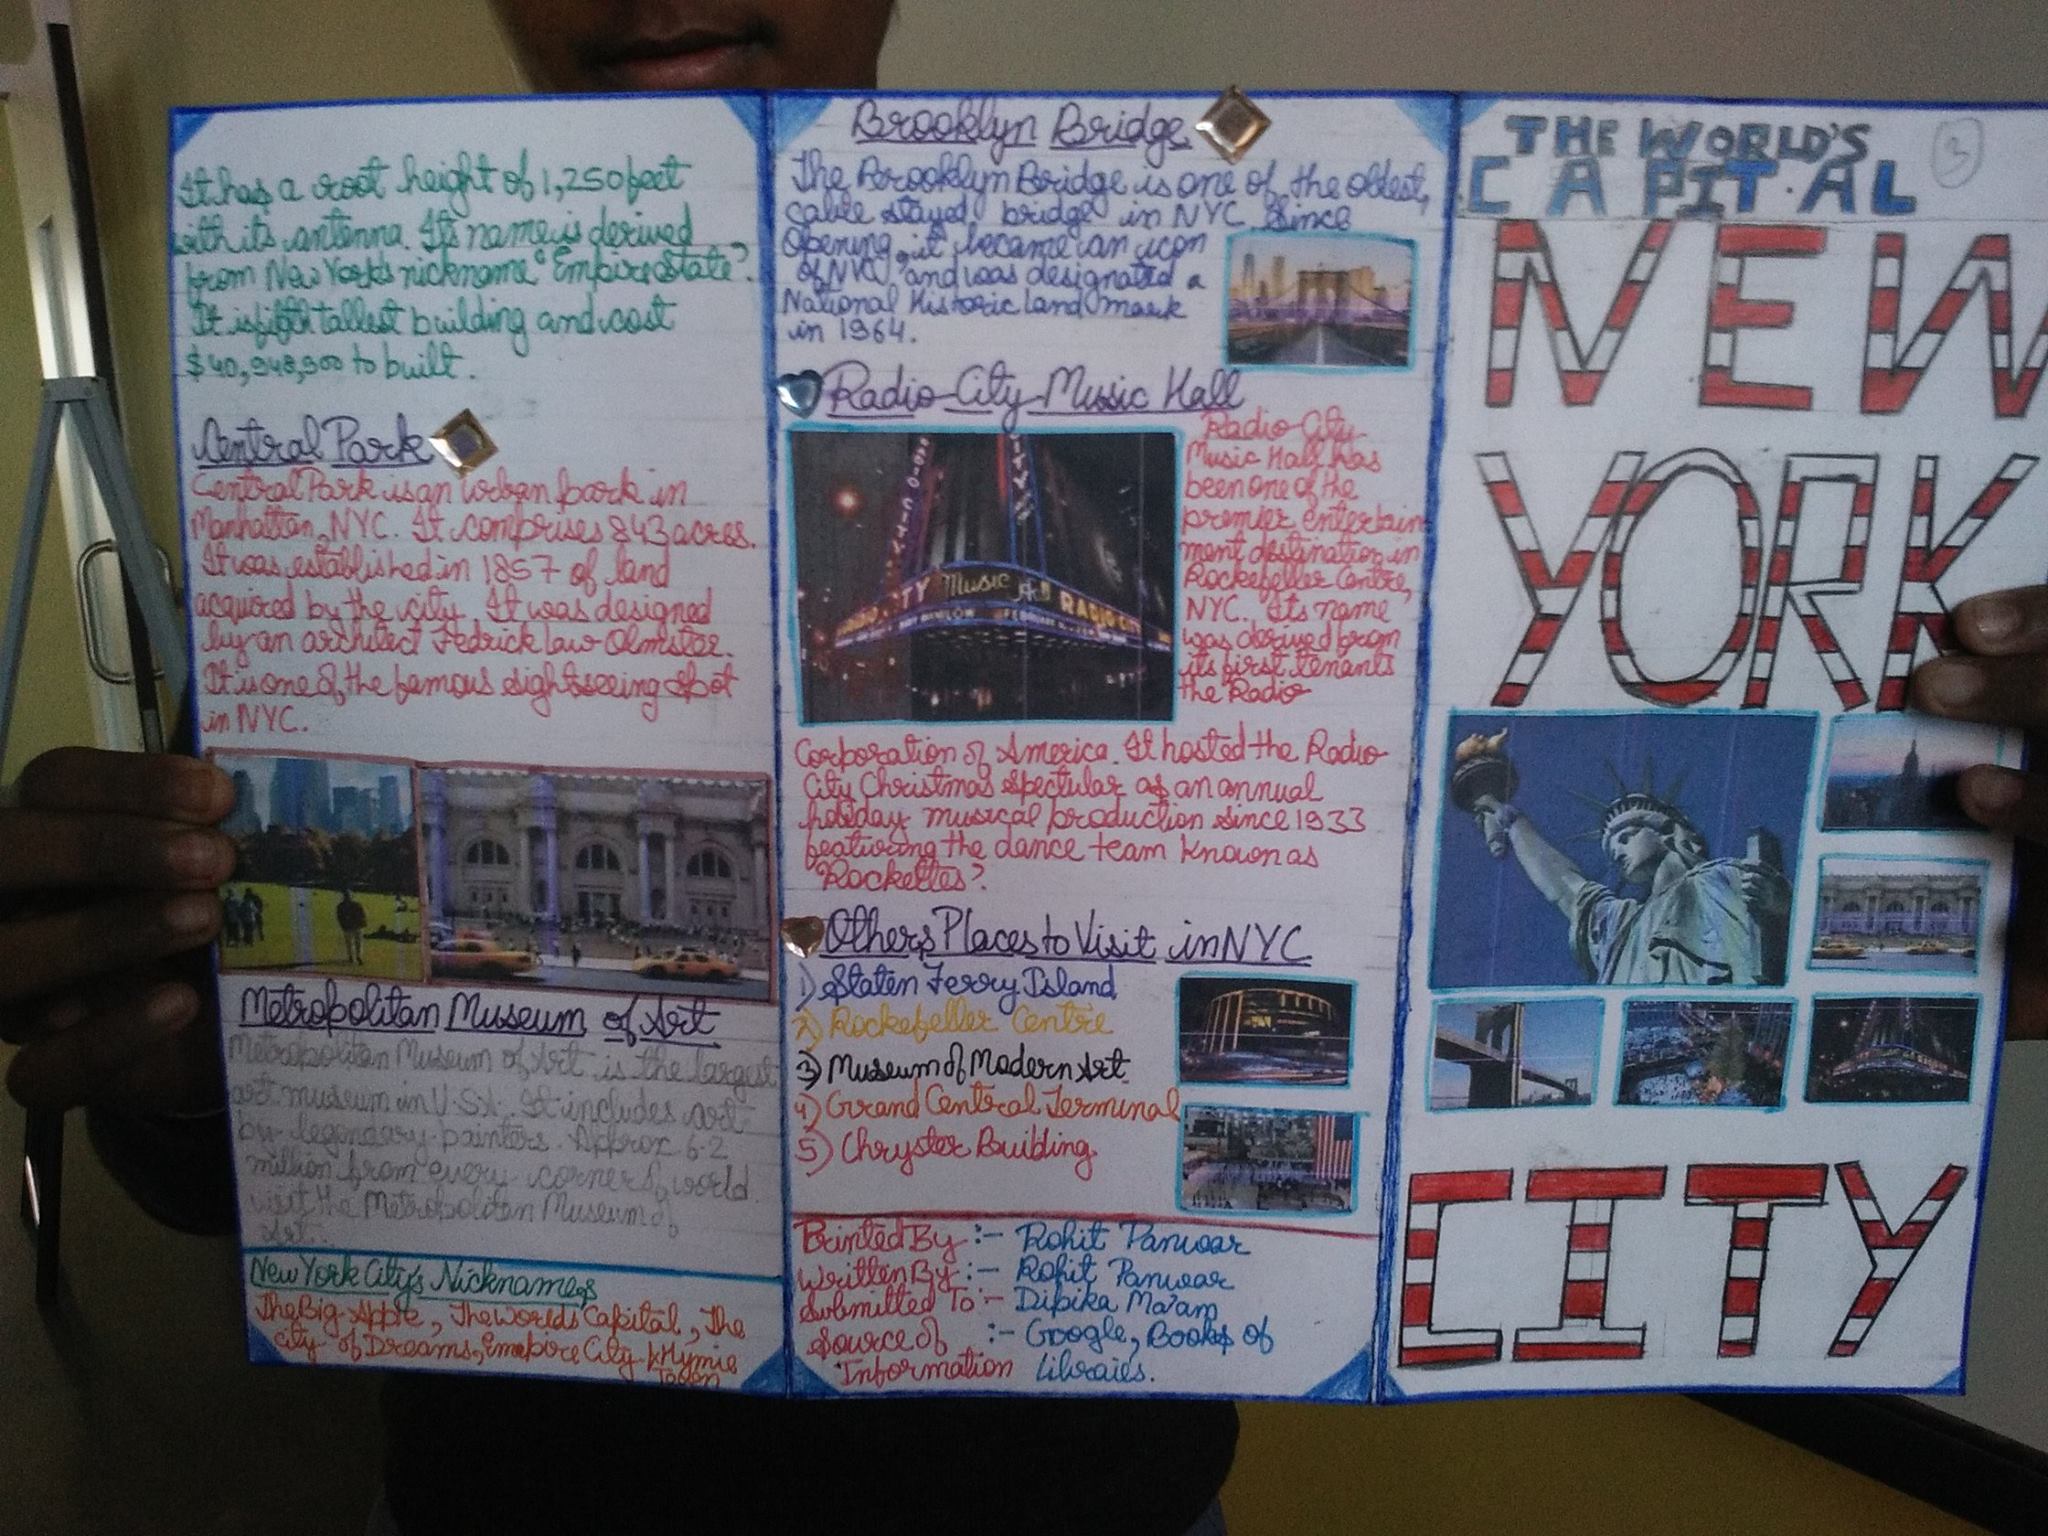 It has a root height of 1,250 feet
with its antenna. Its name is derived
from New York's nickname "Empire State".
It is fifth tallest building and cost
$40,948,900 to built.
Central Park
Central Park is an urban park in
Manhattan, NYC. It comprises 843 acres.
It was established in 1857 of land
acquired by the city. It was designed
by an architect Fedrick law Olmster.
It is one of the famous sightseeing spot
in NYC.
Metropolitan Museum of Art
Metropolitan Museum of Art is the largest
art museum in U.S.A. It includes art
by legendary painters. Approx 6.2
million from every corner of world
visit the Metropolitan Museum of
Art.
New York City's Nicknames
The Big Apple, The worlds Capital, The
City of Dreams, Empire City & Hymie
Town
Brooklyn Bridge
The Brooklyn Bridge is one of the oldest,
cable stayed bridge in NYC. Since
Opening it became an icon
of NYC and was designated a
National Historic land mark
in 1964.
Radio City Music Hall
RADIO CITY
CITY
CITY Music Hall RADIO CITY
Radio City
Music Hall has
been one of the
premier entertain
ment destination in
Rockefeller Centre,
NYC. Its name
was derived from
its first tenants
the Radio
Corporation of America. It hosted the Radio
City Christmas Spectular as an annual
holiday musical production since 1933
featuring the dance team known as
"Rockettes".
Others Places to Visit in NYC
1) Staten Ferry Island
2) Rockefeller Centre
3) Museum of Modern Art
4) Grand Central Terminal
5) Chryster Building
Printed By :- Rohit Panwar
Written By :- Rohit Panwar
Submitted To :- Dipika Ma'am
Source of :- Google, Books of
Information Libraies.
THE WORLD'S
CAPITAL
3
NEW
YORK
CITY